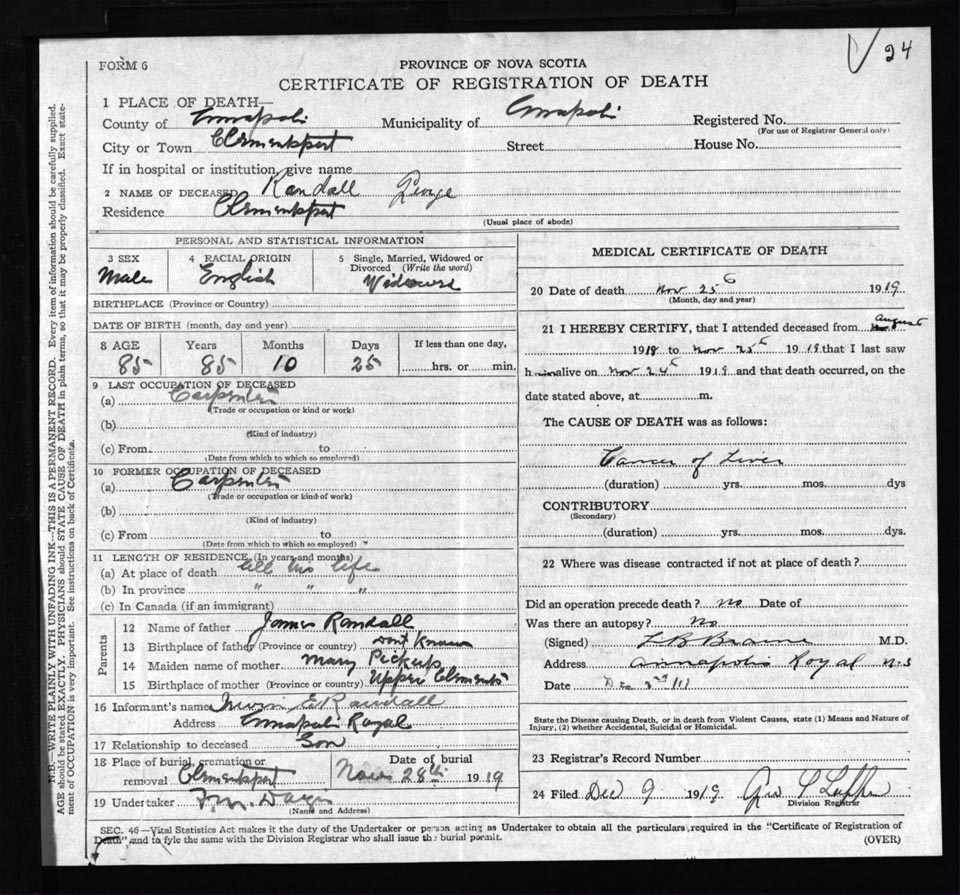 24
FORM 6
PROVINCE OF NOVA SCOTIA
CERTIFICATE OF REGISTRATION OF DEATH
1 PLACE OF DEATH—
County of Annapolis Municipality of Annapolis Registered No.
(For use of Registrar General only)
City or Town Clementsport Street House No.
If in hospital or institution, give name
2 NAME OF DECEASED Randall George
Residence Clementsport
(Usual place of abode)
PERSONAL AND STATISTICAL INFORMATION
3 SEX 4 RACIAL ORIGIN 5 Single, Married, Widowed or
Divorced (Write the word)
Male English Widowed
BIRTHPLACE (Province or Country)
DATE OF BIRTH (month, day and year)
8 AGE Years Months Days If less than one day,
85 85 10 25 hrs. or min.
9 LAST OCCUPATION OF DECEASED
(a) Carpenter
(Trade or occupation or kind or work)
(b)
(Kind of industry)
(c) From to
(Date from which to which so employed)
10 FORMER OCCUPATION OF DECEASED
(a) Carpenter
(Trade or occupation or kind of work)
(b)
(Kind of industry)
(c) From to
(Date from which to which so employed) "
11 LENGTH OF RESIDENCE (In years and months)
(a) At place of death all his life
(b) In province " " "
(c) In Canada (if an immigrant)
Parents
12 Name of father James Randall
13 Birthplace of father (Province or country) Dont Know
14 Maiden name of mother Mary Pickup
15 Birthplace of mother (Province or country) Upper Clements
16 Informant's name E Randall
Address Annapolis Royal
17 Relationship to deceased Son
18 Place of burial, cremation or Date of burial
removal Clementsport Nov 28th 1919
19 Undertaker
(Name and Address)
MEDICAL CERTIFICATE OF DEATH
20 Date of death Nov 25th 1919
(Month, day and year)
21 I HEREBY CERTIFY, that I attended deceased from August
1918 to Nov 25th 1919 that I last saw
him alive on Nov 24th 1919 and that death occurred, on the
date stated above, at m.
The CAUSE OF DEATH was as follows:
Cancer of Liver
(duration) yrs. mos. dys
CONTRIBUTORY
(Secondary)
(duration) yrs. mos. dys.
22 Where was disease contracted if not at place of death?
Did an operation precede death? no Date of
Was there an autopsy? No
(Signed) L B Braine M.D.
Address Annapolis Royal N.S
Date Dec
State the Disease causing Death, or in death from Violent Causes, state (1) Means and Nature of
Injury, (2) whether Accidental, Suicidal or Homicidal.
23 Registrar's Record Number
24 Filed Dec 9 1919
Division Registrar
SEC. 46—Vital Statistics Act makes it the duty of the Undertaker or person acting as Undertaker to obtain all the particulars required in the "Certificate of Registration of
Death", and to fyle the same with the Division Registrar who shall issue the burial permit. (OVER)
N.B.—WRITE PLAINLY WITH UNFADING INK—THIS IS A PERMANENT RECORD. Every item of information should be carefully supplied.
AGE should be stated EXACTLY. PHYSICIANS should STATE CAUSE OF DEATH in plain terms, so that it may be properly classified. Exact state-
ment of OCCUPATION is very important. See instructions on back of Certificate.